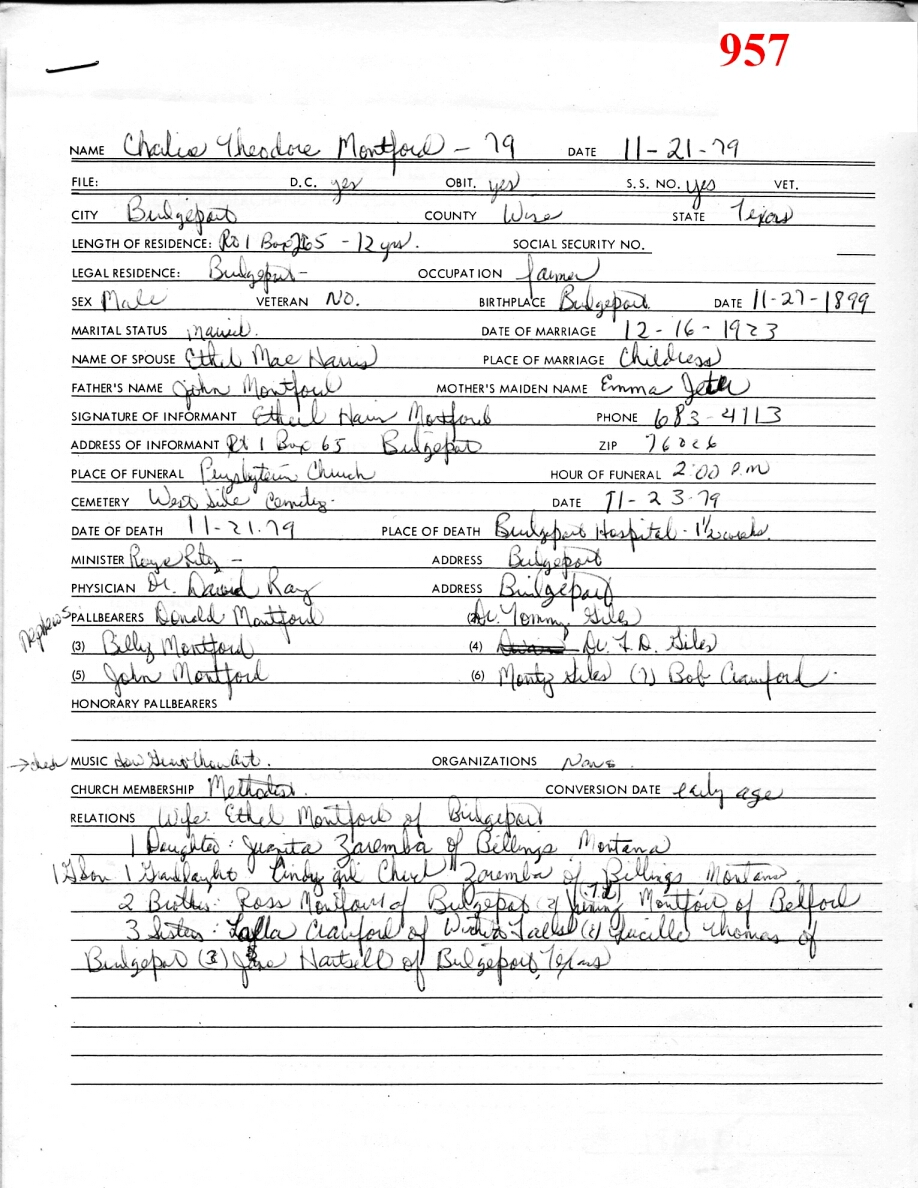 957
NAME Charlie Theodore Montford - 79 DATE 11-21-79
FILE: D.C. yes OBIT. yes S.S. NO. yes VET.
CITY Bridgeport COUNTY Wise STATE Texas
LENGTH OF RESIDENCE: Rt 1 Box 265 - 12 yrs. SOCIAL SECURITY NO.
LEGAL RESIDENCE: Bridgeport - OCCUPATION farmer
SEX Male VETERAN NO. BIRTHPLACE Bridgeport DATE 11-27-1899
MARITAL STATUS married. DATE OF MARRIAGE 12-16-1923
NAME OF SPOUSE Ethel Mae Harris PLACE OF MARRIAGE Childress
FATHER'S NAME John Montford MOTHER'S MAIDEN NAME Emma Jeter
SIGNATURE OF INFORMANT Ethel Montford PHONE 683-4113
ADDRESS OF INFORMANT Rt 1 Box 65 Bridgeport ZIP 76026
PLACE OF FUNERAL Church HOUR OF FUNERAL 2:00 P.M
CEMETERY West Side Cemetery. DATE 11-23-79
DATE OF DEATH 11-21-79 PLACE OF DEATH Bridgeport Hospital - 1½ weeks
MINISTER ADDRESS Bridgeport
PHYSICIAN Dr. David Ray ADDRESS Bridgeport
Nephews PALLBEARERS Donald Montford (2) Dr. Tommy Giles
(3) Billy Montford (4) Dr. F. D. Giles
(5) John Montford (6) Monty Giles (7) Bob Crawford
HONORARY PALLBEARERS
MUSIC How Great Thou Art. ORGANIZATIONS None
CHURCH MEMBERSHIP Methodist. CONVERSION DATE early age
RELATIONS Wife: Ethel Montford of Bridgeport
1 Daughter: Juanita Zaremba of Billings Montana
Zaremba of Billings Montana.
2 Brothers: Ross Montford of Bridgeport (2) Montford of Belford
3 Sisters: Crawford of Wichita Falls (2) Lucille Thomas of
Bridgeport (3) Hartsell of Bridgeport, Texas